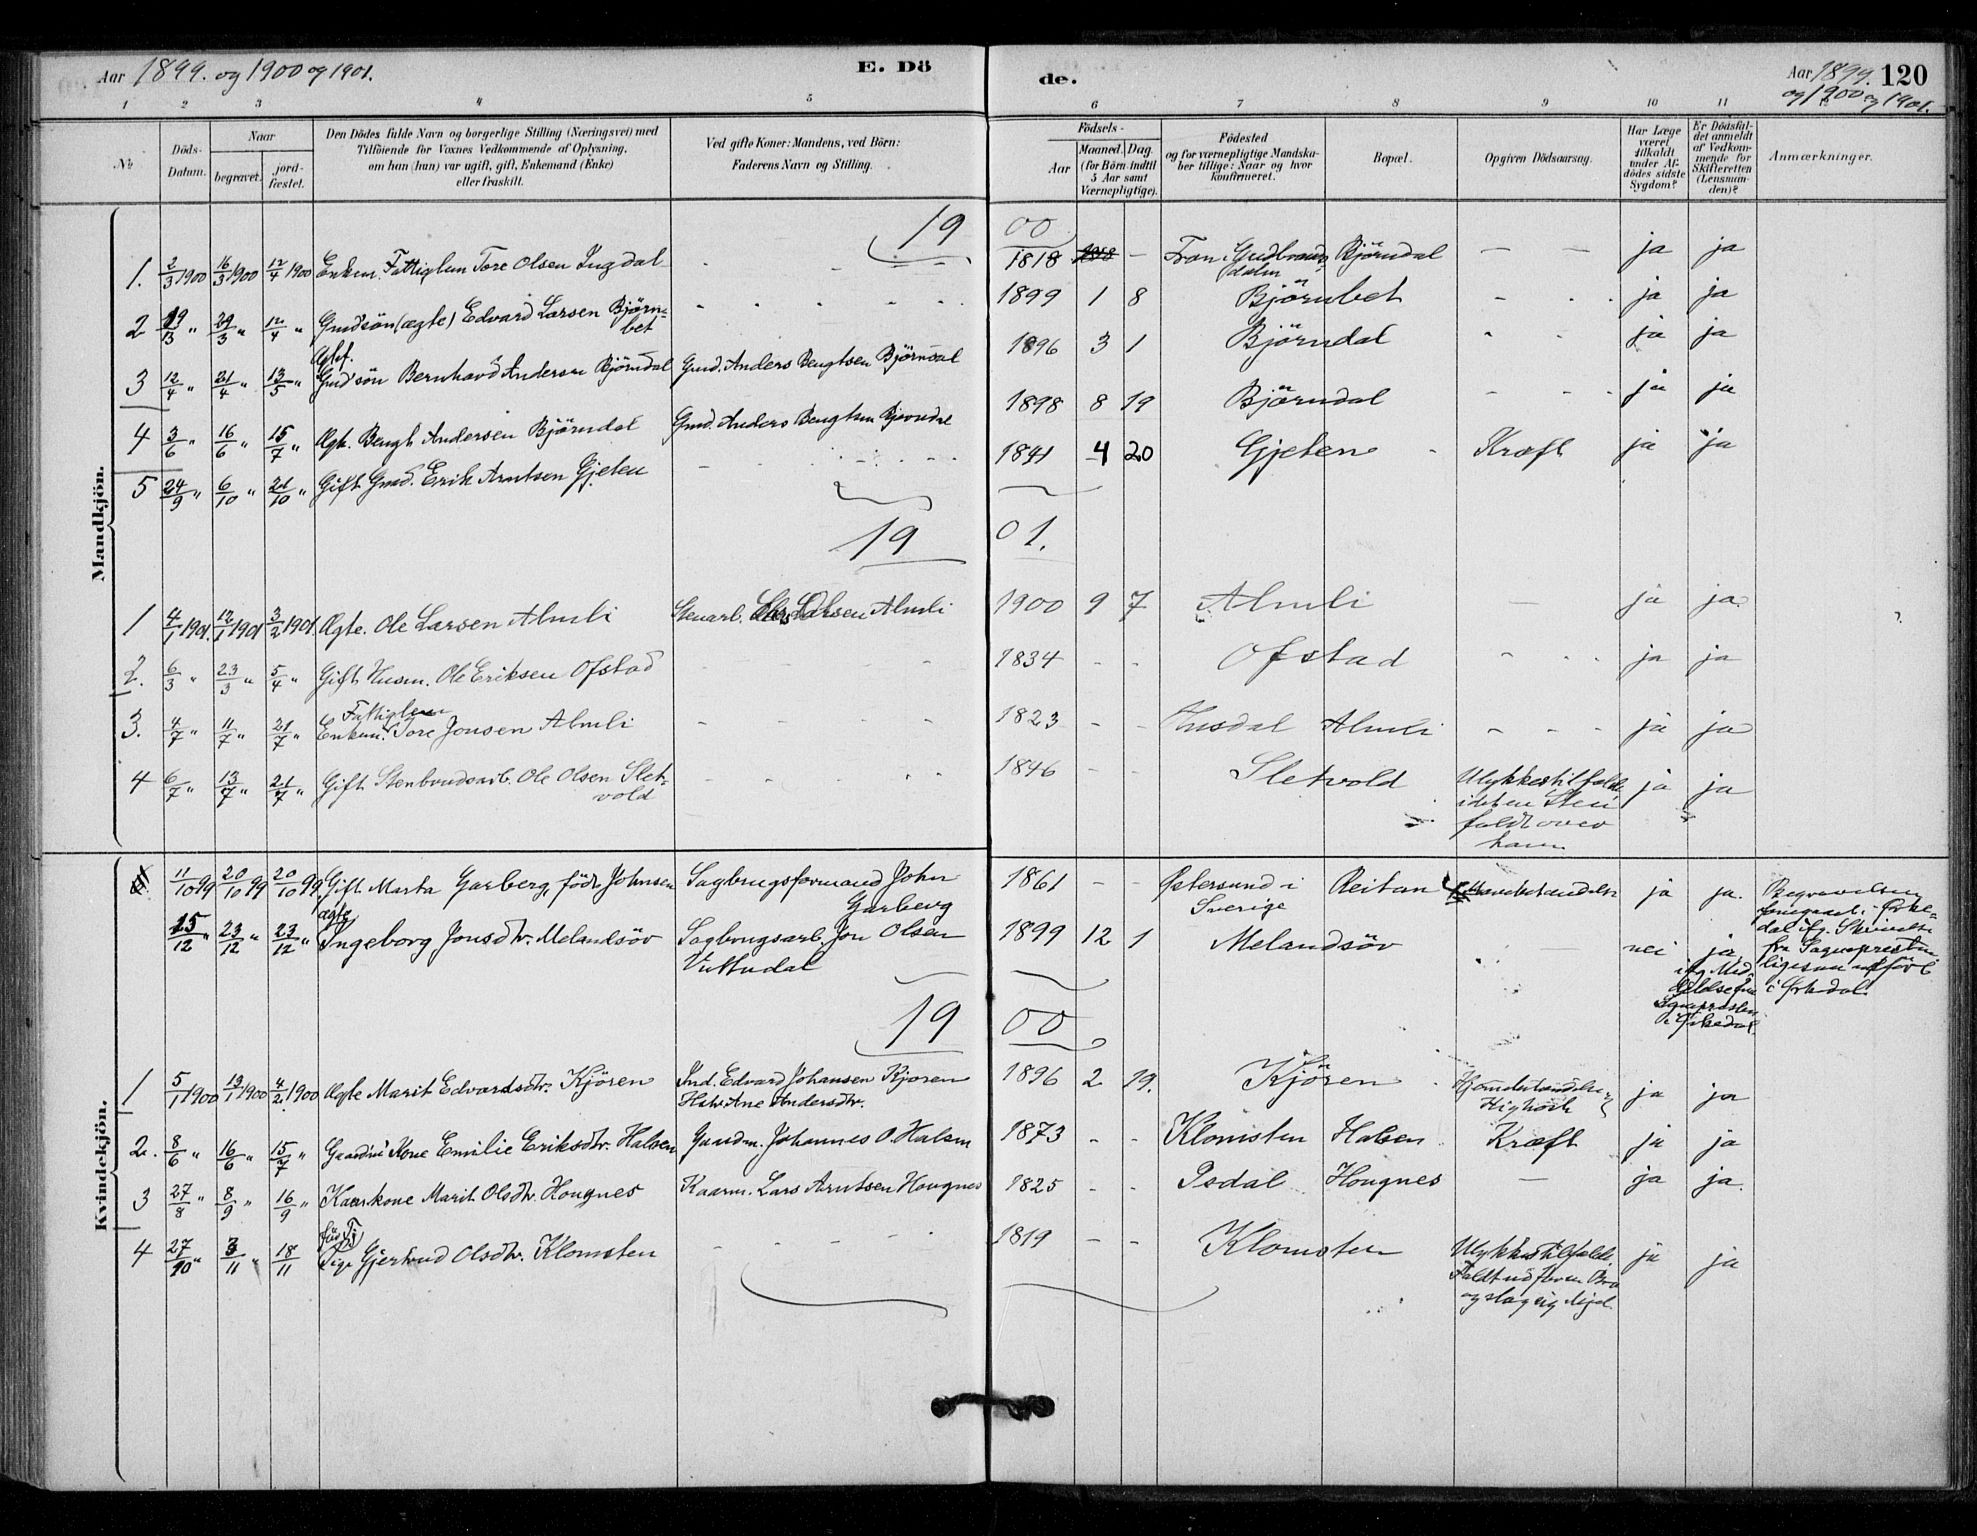 Aar 1899. og 1900 og 1901.
E. Dö
de.
Aar 1899. 120
og 1900 og 1901.
1 2 3 4 5 6 7 8 9 10 11
No.
Döds-
Datum.
Naar
begravet. jord-
fæstet.
Den Dödes fulde Navn og borgerlige Stilling (Næringsvei) med
Tilföiende for Voxnes Vedkommende af Oplysning,
om han (hun) var ugift, gift, Enkemand (Enke)
eller fraskilt.
Ved gifte Koner: Mandens, ved Börn:
Faderens Navn og Stilling.
Födsels-
Aar Maaned. Dag.
(for Börn indtil
5 Aar samt
Værnepligtige).
Födested
og for værnepligtige Mandska-
ber tillige: Naar og hvor
konfirmeret.
Bopæl.
Opgiven Dödsaarsag.
Har Læge
været
tilkaldt
under Af-
dödes sidste
Sygdom?
Er Dödsfal-
det anmeldt
af Vedkom-
mende for
Skifteretten
(Lensman-
den)?
Anmærkninger.
Mandkjön.
19 00
1. 2/3 1900 16/3 1900 12/4 1900 Enkem. Fattiglem Tore Olsen Ingdal - - - 1818 - Fron i Gudbrands Björndal - - ja ja
dalen
2 19/3 " 29/3 " 12/4 " Gmdsön (ægte) Edvard Larsen Björn- - - - 1899 1 8 Björnbet - - - ja ja
bet
Ægt.
3 12/4 " 21/4 " 13/5 " Gmd'sön Bernhard Andersen Björndal Gmd. Anders Bengtsen Björndal 1896 3 1 Björndal - - ja ja
4 3/6 " 16/6 " 15/7 " Ægt. Bengt Andersen Björndal Gmd. Anders Bengtsen Bjørndal 1898 8 19 Björndal - - - ja ja
5 24/9 " 6/10 " 21/10 " Gift Gmd. Erik Arntsen Gjeten - - - 1841 4 20 Gjeten - Kræft ja ja
19 01.
1 4/1 1901. 12/1 1901 3/2 1901 Ægte. Ole Larsen Almli Stenarb. Lars Olsen Almli 1900 9 7 Almli - ja ja
2. 6/3 " 23/3 " 5/4 " Gift Husm. Ole Eriksen Ofstad - - - 1834 - - Ofstad - - - ja ja
Fattiglem
3. 4/7 " 11/7 " 21/7 " Enkem. Tore Jonsen Almli - - - 1823 - - Husdal Almli - - - ja ja
4 6/7 " 13/7 " 21/7 " Gift Stenbrudsarb. Ole Olsen Slet- - - - 1846 - - Sletvold Ulykkestilfælde ja ja
vold idet en Sten
faldt over
ham
Kvindekjön.
11/10 99 20/10 99 20/10 99. Gift Marta Garberg, född Johnsen Sagbrugsformand John 1861 - - Østersund i Reitan ja ja. Begravelsen
Garberg Sverige
ægte
15/12 " 23/12 " 23/12 " Ingeborg Jonsdtr. Melandsöv Sagbrugsarb. Jon Olsen 1899 12 1 Melandsöv - nei ja
Vuttudal
i Orkedal
19 00
1 5/1 1900 13/1 1900 4/2 1900 Ægte Marit Edvardsdtr. Kjören Ind. Edvard Johansen Kjøren 1896 2 19. Kjören ja ja
Hstr. Ane Andersdtr. Kighoste
2. 8/6 " 16/6 " 15/7 " Gaardm's Kone Emilie Eriksdtr. Halsen Gaardm. Johannes O. Halsen 1873 - - Klomsten Halsen Kræft ja ja
3 27/8 " 8/9 " 16/9 " Kaarkone Marit Olsdtr. Hougnes Kaarm. Lars Arntsen Hougnes 1825 - - Isdal Hougnes - ja ja.
4 27/10 " 3/11 " 18/11 Pige Gjertrud Olsdtr. Klomsten - - - 1819 - - Klomsten Ulykkestilfælde, ja ja
Faldt ud for en Bro
og slog sig ihjel